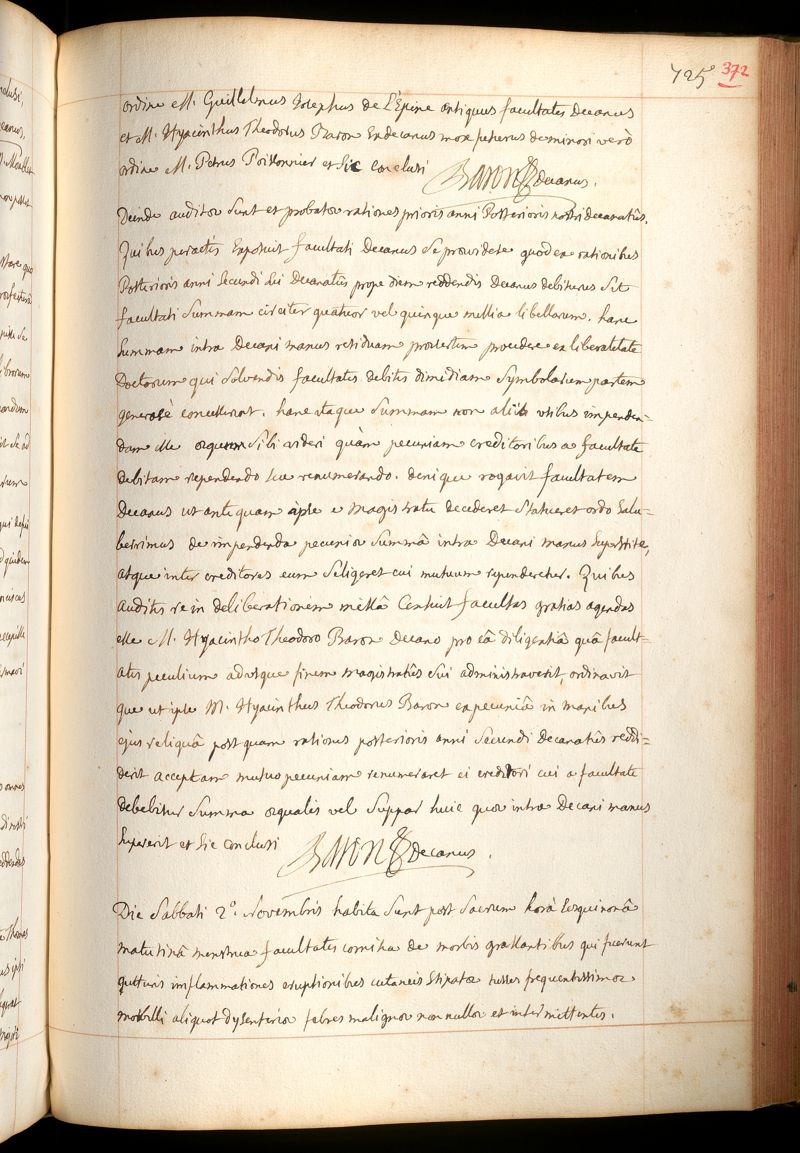 725 372
ordine M. Guillelmus Josephus de L'Epine antiquus facultatis Decanus
et M. Hyacinthus Theodorus Baron Exdecanus mox futurus de minori verò
ordine M. Petrus Poissonnier et sic conclusi
Baron Decanus.
Deinde auditæ sunt et probatæ rationes prioris anni Posterioris nostri decanatûs.
Quibus peractis Exposuit facultati Decanus se providere quod ex rationibus
Posterioris anni secundi sui Decanatûs prope diem reddendis Decanus debiturus sit
facultati summam circiter quatuor vel quinque millia libellarum. hanc
summam intra Decani manus residuam præsertim procedere ex liberalitate
Doctorum qui solvendis facultatis debitis dimidiam symbolarum partem
generosè concesserunt. hanc itaque summam non aliis usibus impenden-
dam esse æquum sibi videri quàm pecuniam creditoribus a facultate
debitam rependendo seu renumerando. denique rogavit facultatem
Decanus ut antequam ipse e magistratu decederet statueret ordo salu=
berrimus de impendenda pecuniæ summâ intra Decani manus superstite,
atque inter creditores eum seligeret cui mutuum rependeretur. Quibus
auditis re in deliberationem missâ Censuit facultas gratias agendas
esse M. Hyacintho Theodoro Baron Decano pro eâ diligentiâ quâ facult=
atis peculium adusque finem magistratûs sui administraverit, ordinavit
que ut ipse M. Hyacinthus Theodorus Baron ex pecuniâ in manibus
ejus reliquâ postquam rationes posterioris anni secundi decanatûs reddi=
derit acceptam mutuo pecuniam renumeraret ei creditori cui a facultate
debebitur summa æqualis vel suppar huic quæ intra Decani manus
supererit et sic conclusi
Baron Decanus.
Die Sabbati 2º. Novembris habita sunt post sacrum horâ sesquinonâ
matutinâ menstrua facultatis comitia de morbis grassantibus qui fuerunt
gutturis inflammationes eruptionibus cutaneis stipatæ tusses frequentissimæ
morbilli aliquot dysenteriæ febres malignæ nonnullæ et intermittentes.